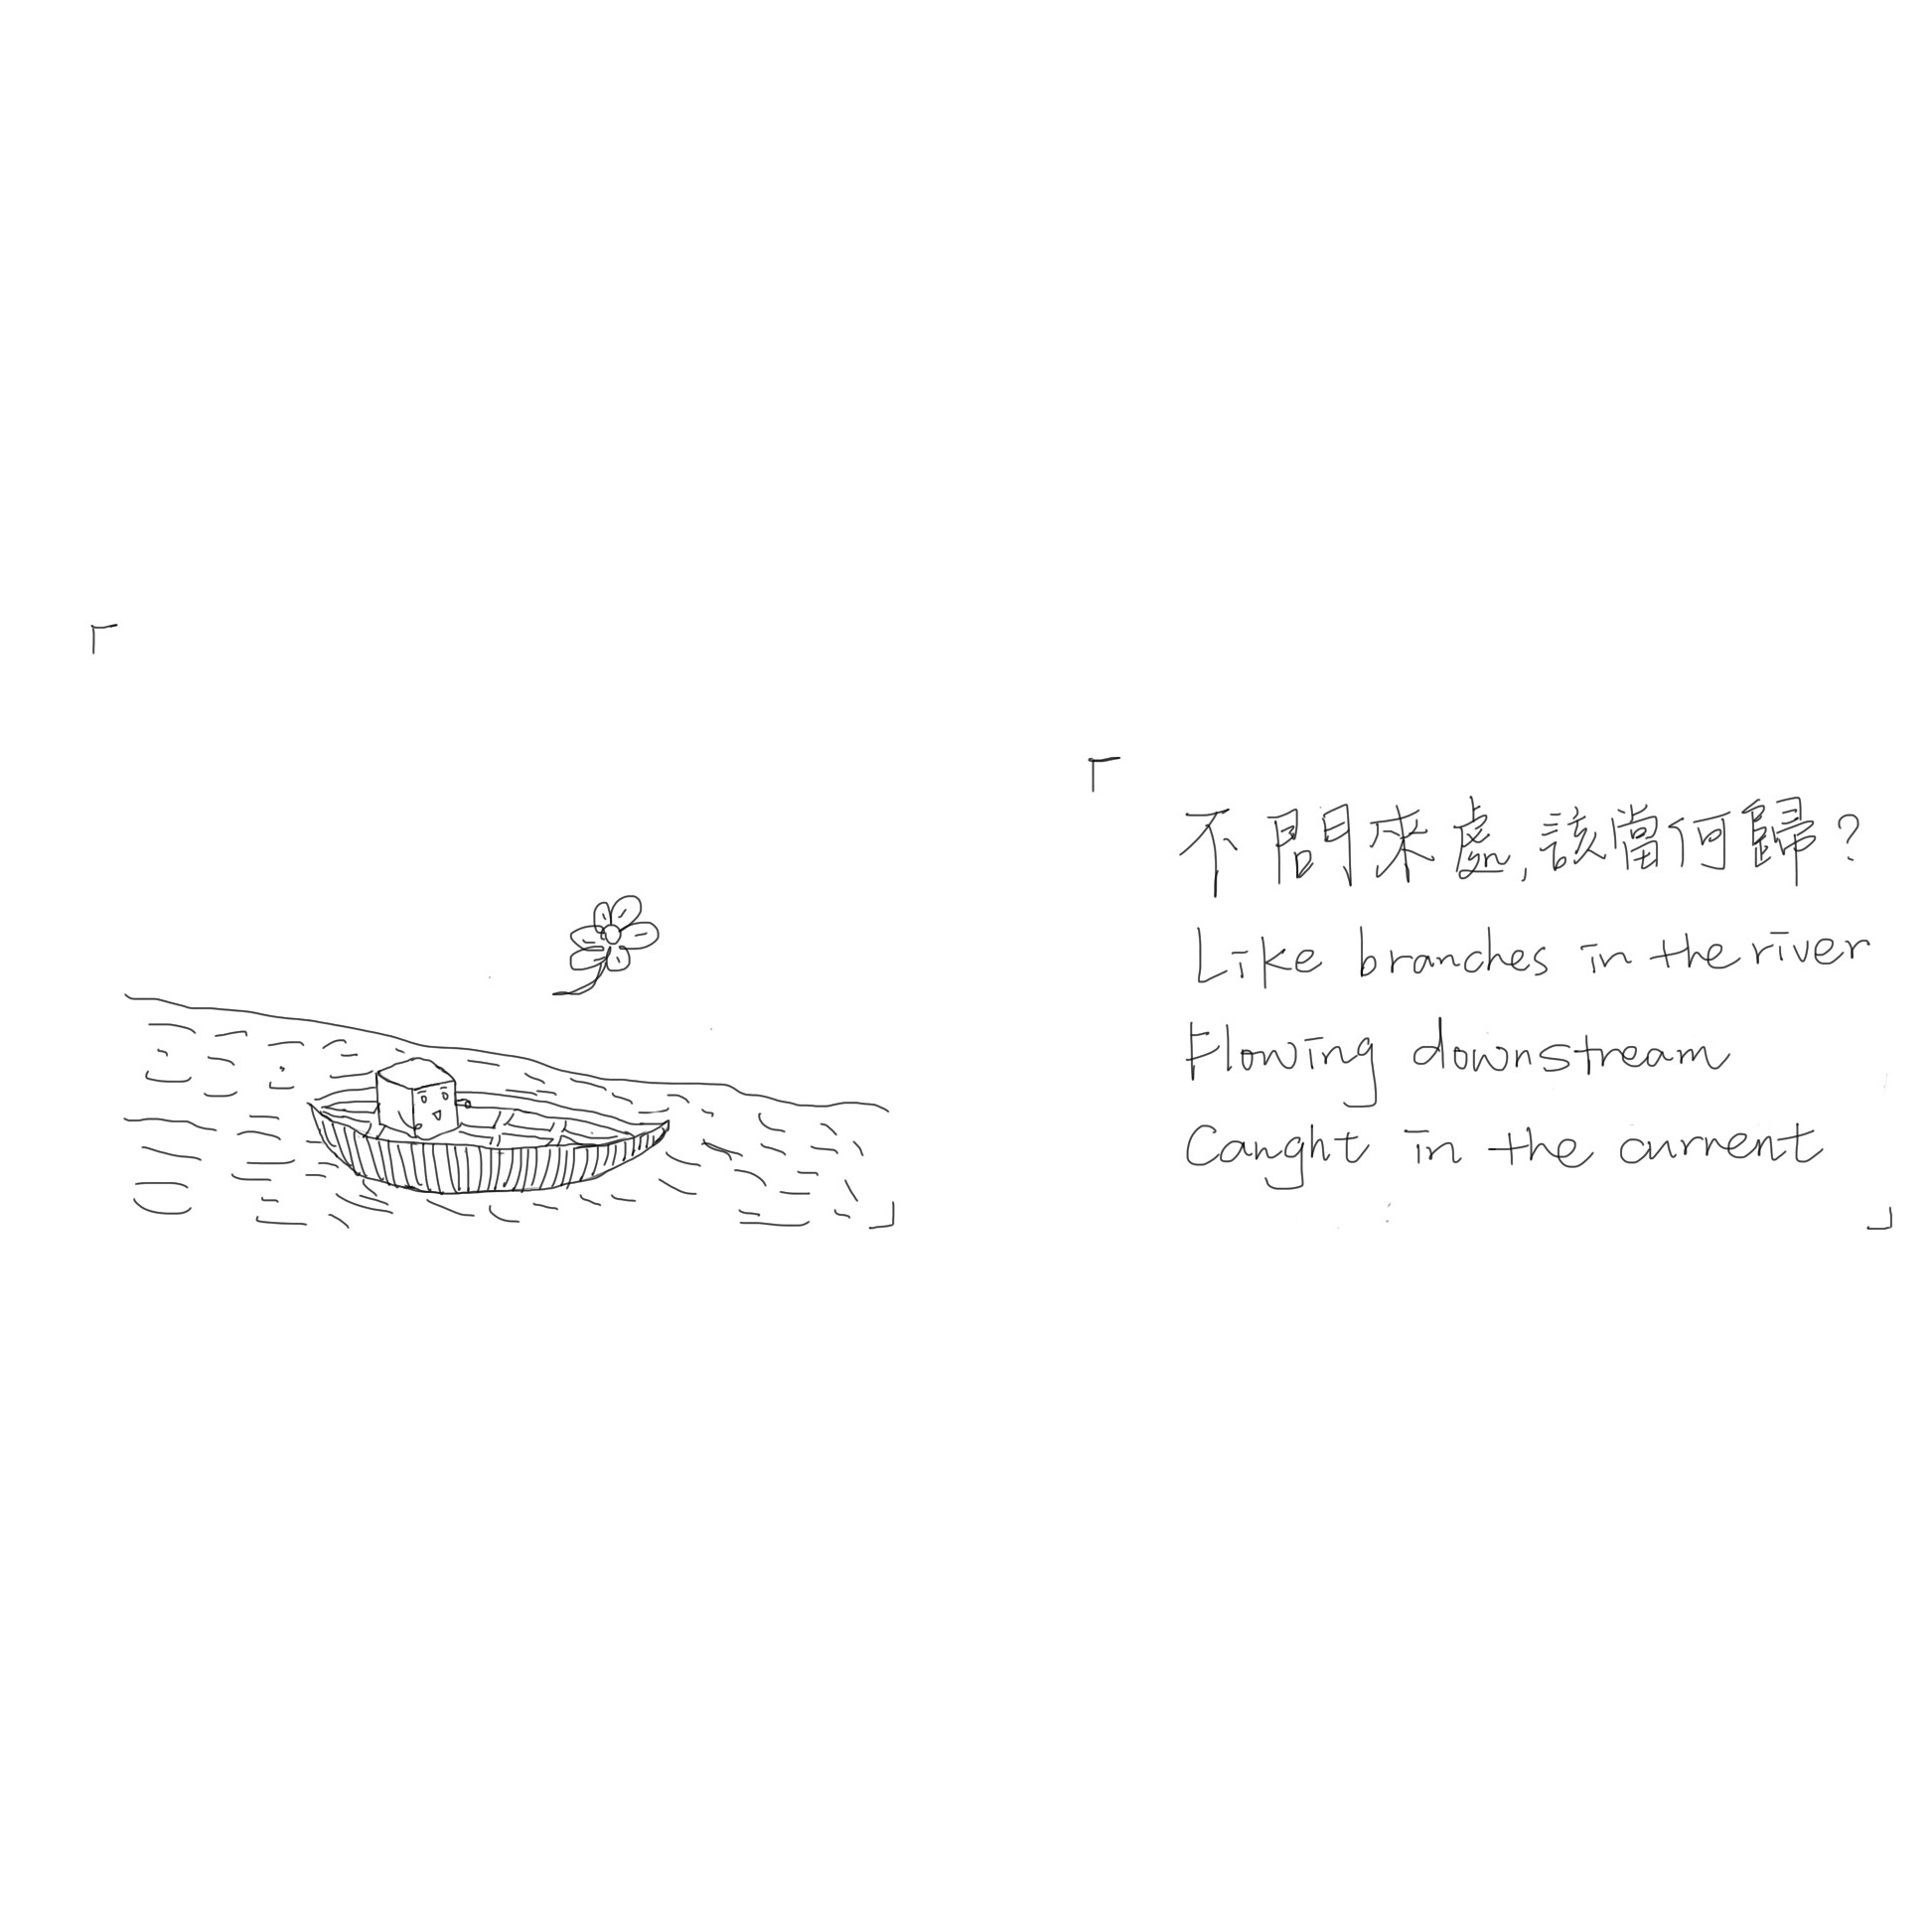 不問來處,該當何歸?
Like branches in the river
Flowing downstream
Caught in the current